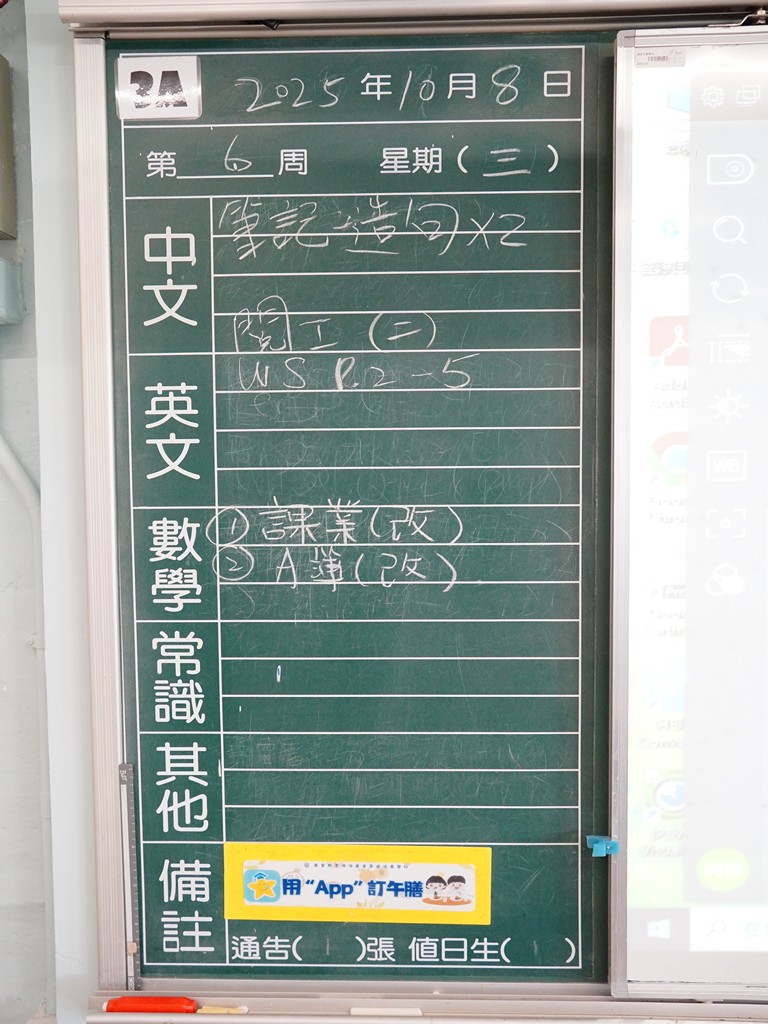 3A
2025年10月8日
第 6 周 星期(三)
中文
筆記、造句x2
閱工(二)
英文
WS P.2-5
數學
① 課業(改)
② A簿(改)
常識
其他
備註
用“App”訂午膳
通告( )張 值日生( )
WB